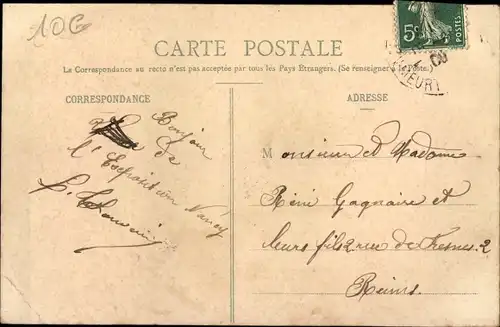 10G
5c
CARTE POSTALE
La Correspondance au recto n'est pas acceptée par tous les Pays Étrangers. (Se renseigner à la Poste.)
CORRESPONDANCE
ADRESSE
Bonjour
de
l'Exposition Nancy
Monsieur et Madame
René Gagnaire et
leurs fils 2 rue de Fresnes 2
Reims.